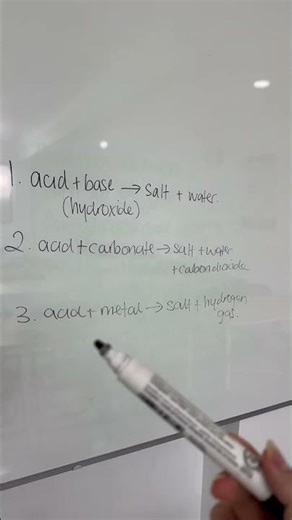 1. acid + base → salt + water.
(hydroxide)
2. acid + carbonate → salt + water
+ carbondioxide
3. acid + metal → salt + hydrogen
gas.